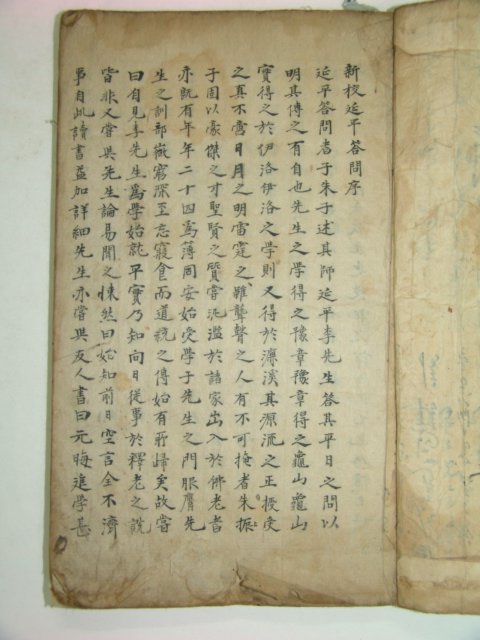 新校延平答問序
延平答問者子朱子述其師延平李先生答其平日之問以
明其傳之有自也先生之學得之豫章豫章得之龜山龜山
實得之於伊洛伊洛之學則又得於濂溪其源流之正授受
之真不啻日月之明雷霆之雖聾瞽之人有不可掩者朱
子固以豪傑之才聖賢之質嘗泛濫於諸家出入於佛老者
亦既有年年二十四爲薄同安始受學于先生之門服膺先
生之訓部微窮深至忘寢食而道統之傳始有所歸矣故嘗
曰自見李先生爲學始就平實乃知向日從事於釋老之說
皆非又嘗與先生論易聞之悚然曰始知前日空言全不濟
事自此讀書益加詳細先生亦嘗與友人書曰元晦進學甚